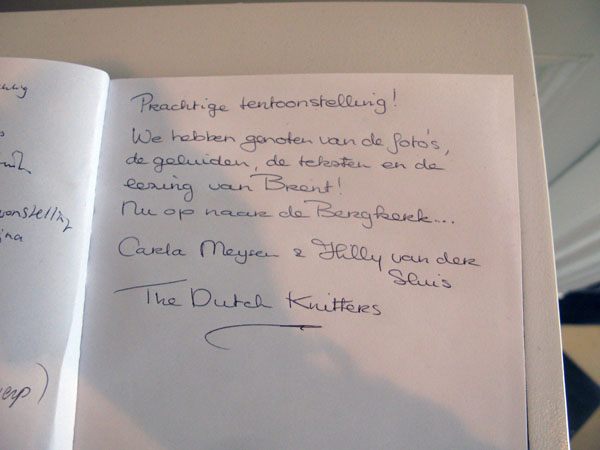 Prachtige tentoonstelling!
We hebben genoten van de foto's,
de geluiden, de teksten en de
lezing van Brent!
Nu op naar de Bergkerk...
Carla Meysen & Hilly van der
Sluis
The Dutch Knitters